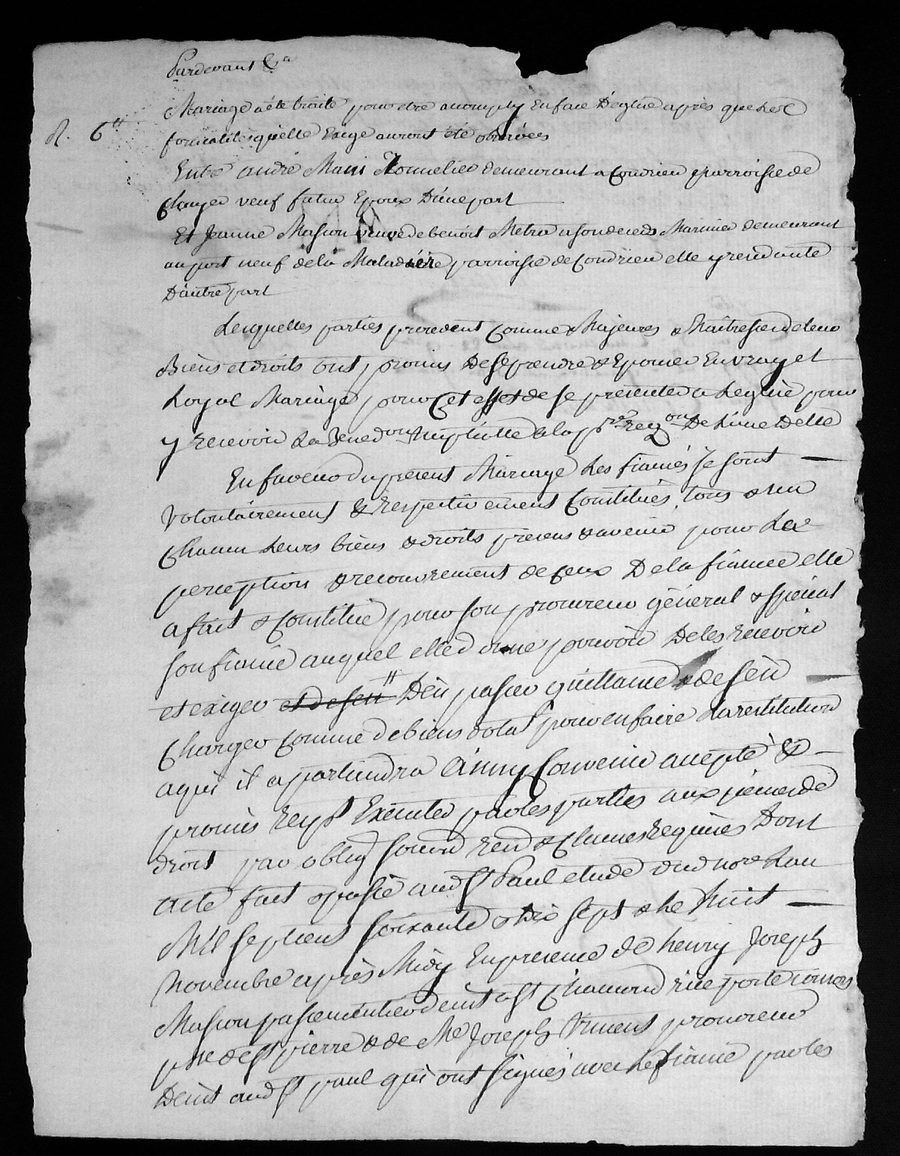 Pardevant &a
Mariage a été traité pour être accomply en face d'Eglise après que les
R. 6tt
formalités quelle Exige auront été observées
Entre andré Mani Tonnelier demeurant a Condrieu parroisse de
veuf futur Epoux D'une part
Et Jeanne Masson veuve de benoit Metra Marinier demeurant
au port neuf de la Maladière parroisse de Condrieu elle yrendante
D'autre part
Lesquelles parties procedent comme Majeures & Maitresses de leurs
Biens et droits ont promis De se prendre & Epouser En vray et
Loyal Mariage pour Cet effet de se présenter a Leglise pour
y recevoir La Bened.on nuptialle a la p.re req.on De l'une Delle
En faveur du present Mariage Les fiancés se sont
volontairement & respectivement Constitués tous & un
Chacun Leurs biens & droits presens & avenir pour La
perception & recouvrement de ceux De la fiancée elle
a fait & constitué pour son procureur général & special
son fiancé auquel elle donne pouvoir De les recevoir
et exiger et de sen D'en passer quittance & de s'en
Charger comme de biens dotal pour en faire La restitution
a qui il appartiendra Ainsy Convenu accepté &
promis Executer par les parties aux peines de
droit par oblig soum rend & Clauses requises Dont
acte fait & passé aud St Paul etude dud nore Lan
Mil sept cens soixante & dix sept & le huit
Novembre après Midy En presence de henry Joseph
Masson passementier St Chamond rüe porte
psse de St pierre & de Me Joseph Vincent procureur
Deud aud St paul qui ont signés avec Le fiancé par les